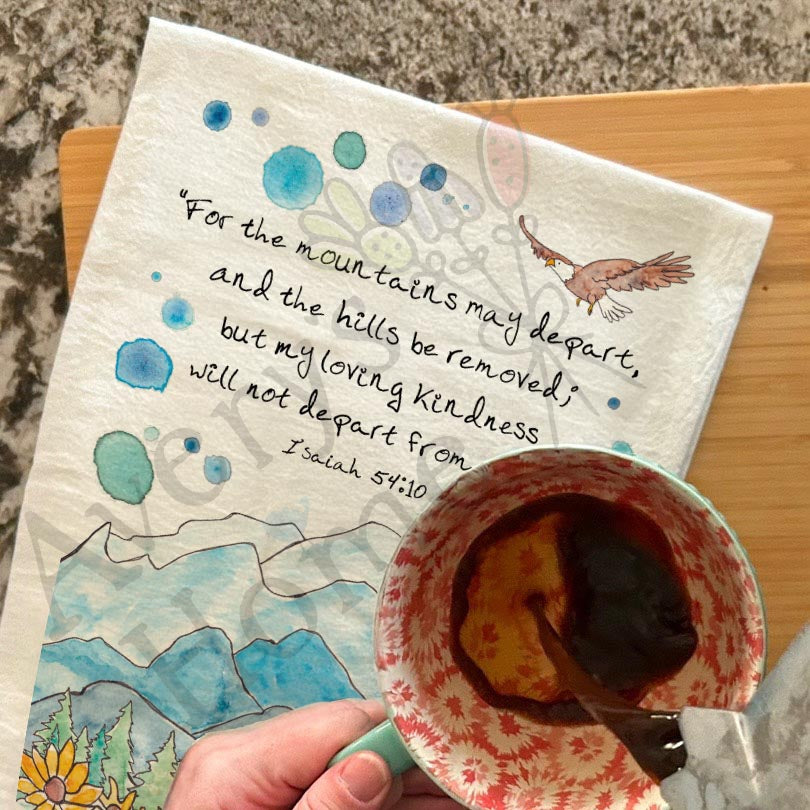 "For the mountains may depart,
and the hills be removed;
but my loving kindness
will not depart from
Isaiah 54:10
Avery's
Home